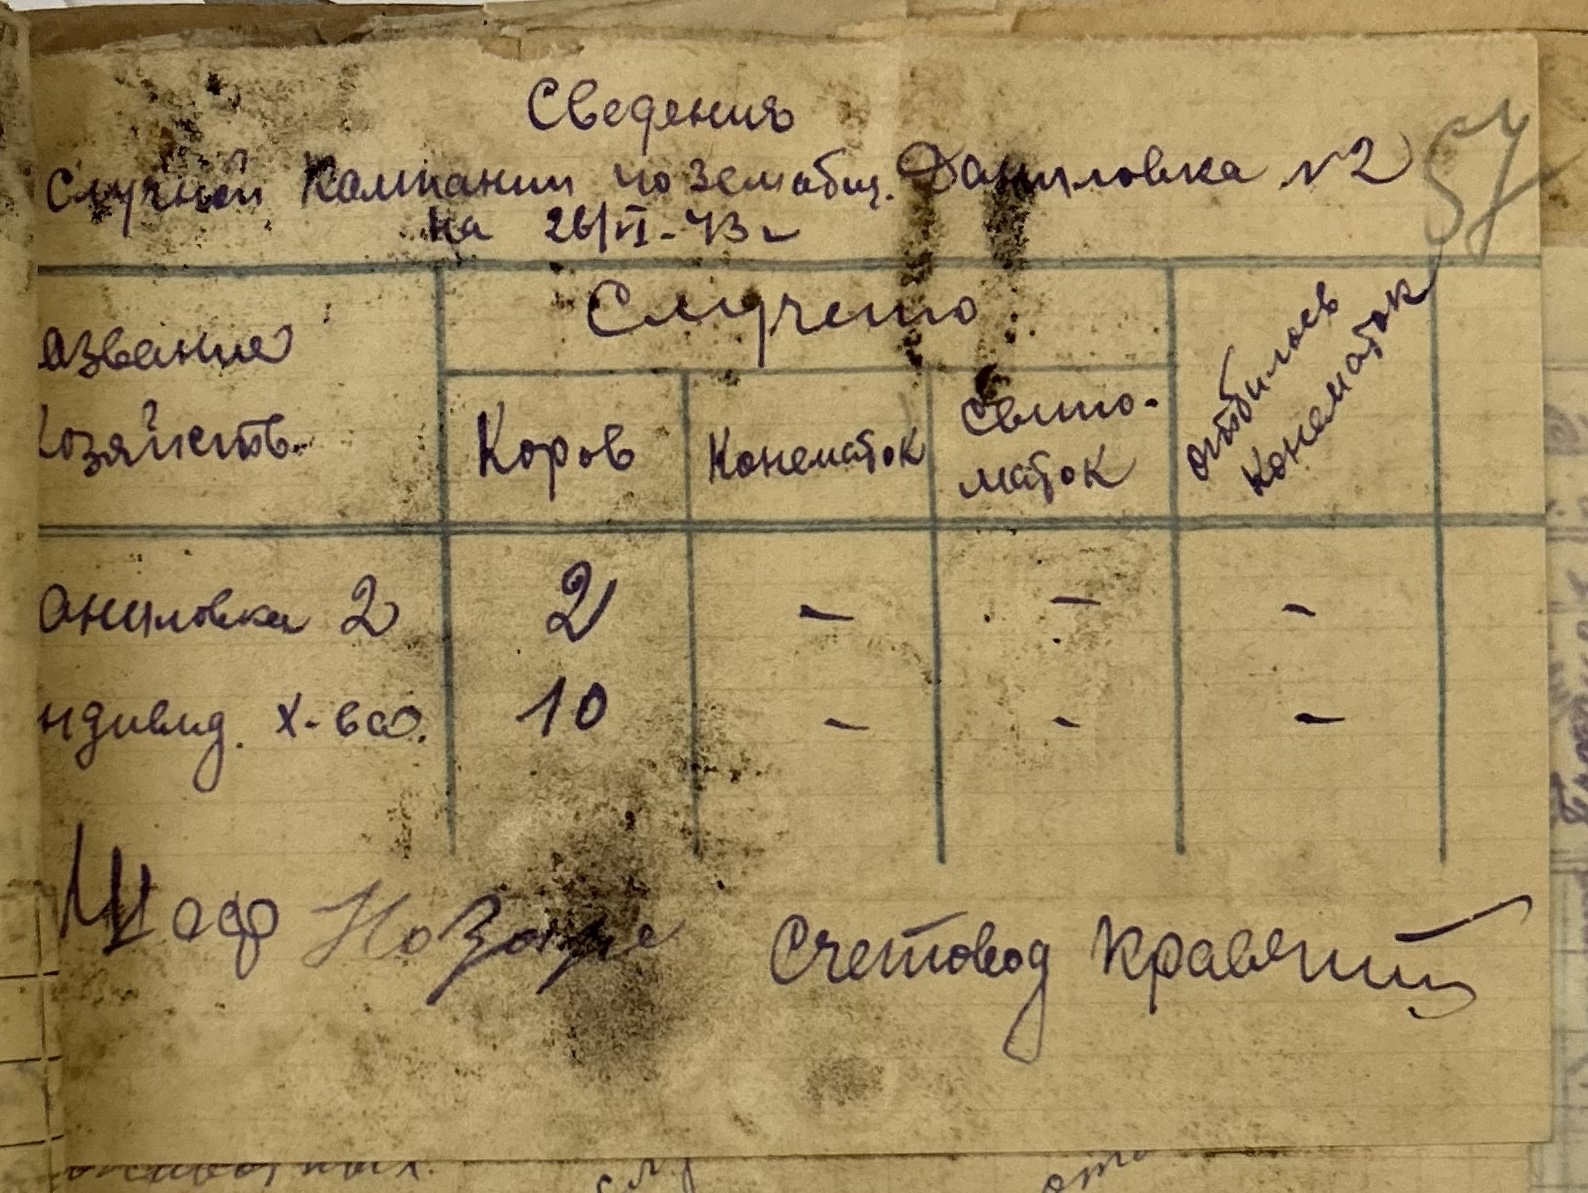 Сведения
Случной Кампании по земобщ. Даниловка №2
57
на 26/VI-43 г
Случено
азвание
хозяйств.
Коров
Конематок
Свино-
маток
отбилось
Конематок
аниловка 2
2
-
-
-
ндивид. х-ва.
10
-
-
-
Счетовод